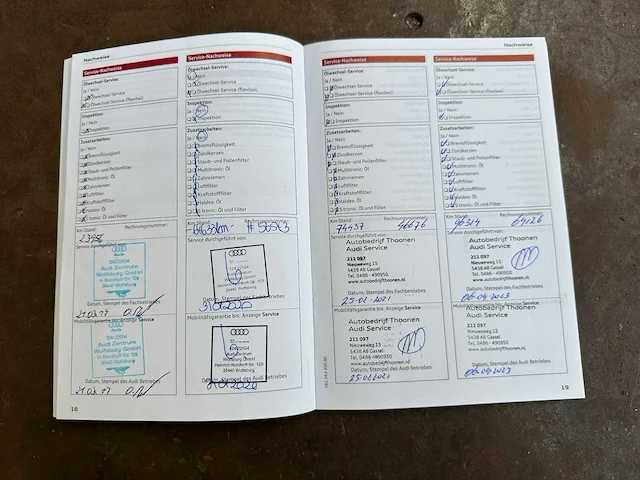 Nachweise
Service-Nachweise
Ölwechsel-Service:
Ja / Nein
Ölwechsel-Service
Ölwechsel-Service (flexibel)
Inspektion:
Ja / Nein
Inspektion
Zusatzarbeiten:
Ja / Nein
Bremsflüssigkeit
Zündkerzen
Staub- und Pollenfilter
Multitronic: Öl
Zahnriemen
Luftfilter
Kraftstofffilter
Haldex: Öl
S tronic: Öl und Filter
Km Stand:
Rechnungsnummer:
Service durchgeführt von:
Audi
Audi Zentrum
Wolfsburg GmbH
38440 Wolfsburg
Datum, Stempel des Fachbetriebes
Mobilitätsgarantie bis: Anzeige Service
Audi
Audi Zentrum
Wolfsburg GmbH
38440 Wolfsburg
Datum, Stempel des Audi Betriebes
18
Service-Nachweise
Ölwechsel-Service:
Ja / Nein
Ölwechsel-Service
Ölwechsel-Service (flexibel)
Inspektion:
Ja / Nein
Inspektion
Zusatzarbeiten:
Ja / Nein
Bremsflüssigkeit
Zündkerzen
Staub- und Pollenfilter
Multitronic: Öl
Zahnriemen
Luftfilter
Kraftstofffilter
Haldex: Öl
S tronic: Öl und Filter
Service durchgeführt von:
Datum, Stempel des Fachbetriebes
Mobilitätsgarantie bis: Anzeige Service
Audi Zentrum
Wolfsburg GmbH
38440 Wolfsburg
Datum, Stempel des Audi Betriebes
Service-Nachweise
Ölwechsel-Service:
Ja / Nein
Ölwechsel-Service
Ölwechsel-Service (flexibel)
Inspektion:
Ja / Nein
Inspektion
Zusatzarbeiten:
Ja / Nein
Bremsflüssigkeit
Zündkerzen
Staub- und Pollenfilter
Multitronic: Öl
Zahnriemen
Luftfilter
Kraftstofffilter
Haldex: Öl
S tronic: Öl und Filter
Km Stand:
Rechnungsnummer:
74437 46676
Service durchgeführt von:
Autobedrijf Thoonen
Audi Service
211 097
Nieuweweg 15
5438 AB Gassel
Tel. 0486 - 490950
www.autobedrijfthoonen.nl
Datum, Stempel des Fachbetriebes
25-02-2021
Mobilitätsgarantie bis: Anzeige Service
Autobedrijf Thoonen
Audi Service
211 097
Nieuweweg 15
5438 AB Gassel
Tel. 0486 - 490950
www.autobedrijfthoonen.nl
Datum, Stempel des Audi Betriebes
25-02-2021
Nachweise
Service-Nachweise
Ölwechsel-Service:
Ja / Nein
Ölwechsel-Service
Ölwechsel-Service (flexibel)
Inspektion:
Ja / Nein
Inspektion
Zusatzarbeiten:
Ja / Nein
Bremsflüssigkeit
Zündkerzen
Staub- und Pollenfilter
Multitronic: Öl
Zahnriemen
Luftfilter
Kraftstofffilter
Haldex: Öl
S tronic: Öl und Filter
Km Stand:
Rechnungsnummer:
96314 64126
Service durchgeführt von:
Autobedrijf Thoonen
Audi Service
211 097
Nieuweweg 15
5438 AB Gassel
Tel. 0486 - 490950
www.autobedrijfthoonen.nl
Datum, Stempel des Fachbetriebes
06-04-2023
Mobilitätsgarantie bis: Anzeige Service
Autobedrijf Thoonen
Audi Service
211 097
Nieuweweg 15
5438 AB Gassel
Tel. 0486 - 490950
www.autobedrijfthoonen.nl
Datum, Stempel des Audi Betriebes
06-04-2023
19